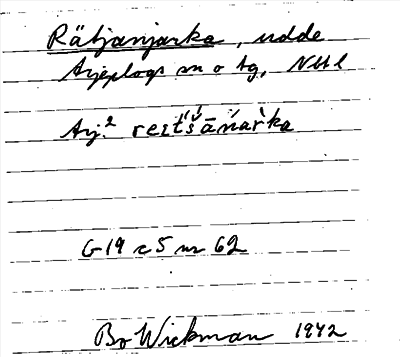 Rätjanjarka, udde
Arjeplogs sn o tg, Nbtl
Arj.² reit́š́āńar̀ka
G 19 c 5 nr 62
Bo Wickman 1942